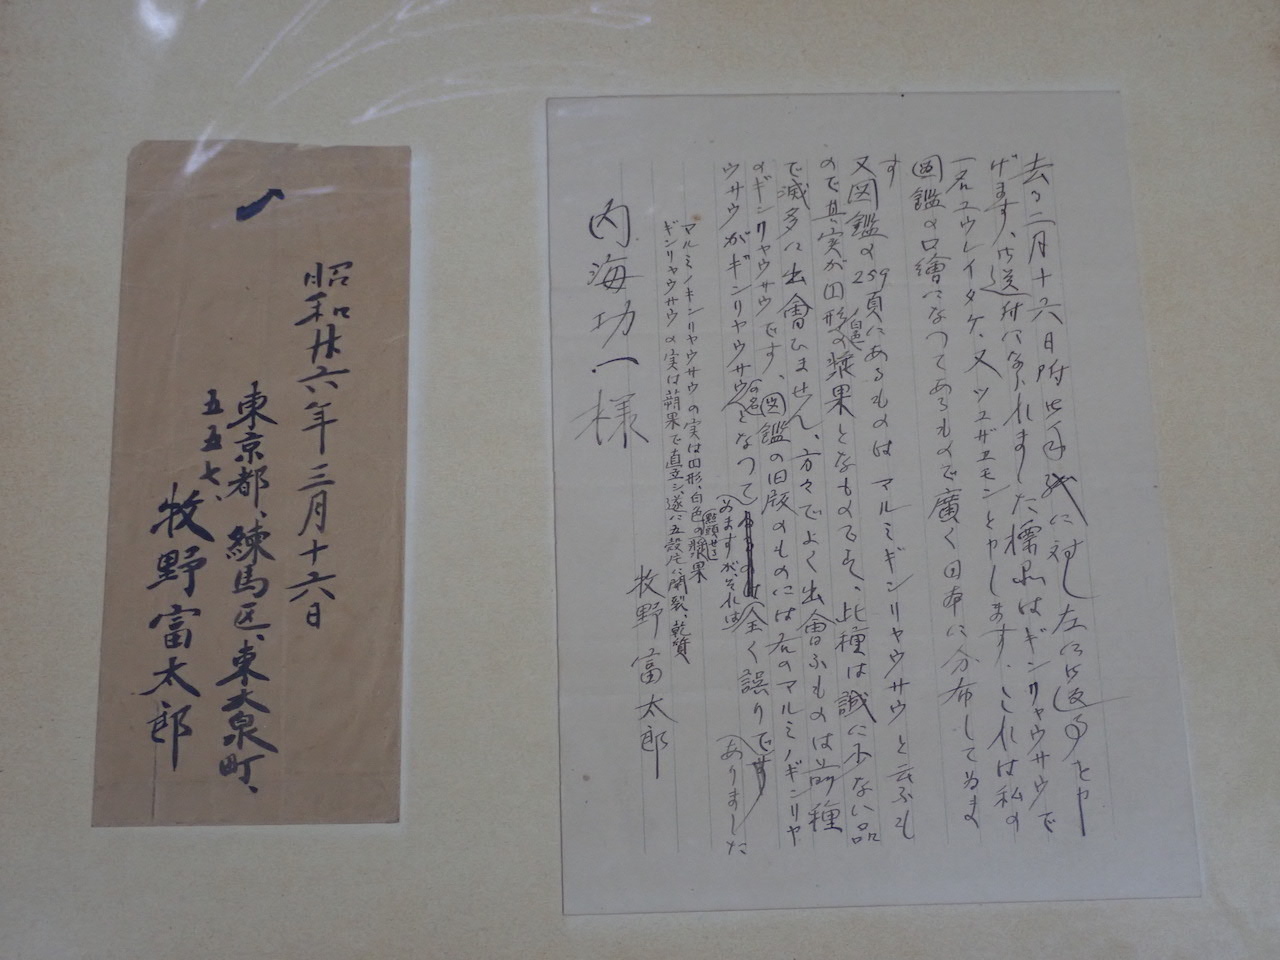 去る二月十六日附御手紙に対し左に御返事を申
げます、御送付になられました標品はギンリャウサウで
一名ユウレイタケ、又ツユザエモンと申します、これは私の
図鑑の口繪になつてあるもので廣く日本に分布して居ま
す
又図鑑の259頁にあるものはマルミギンリャウサウと云ふも
ので其実が円形の白色漿果となものです、此種は誠に少ない品
で滅多に出會ひません、方々でよく出會ふものは前種
のギンリャウサウです、図鑑の旧版のものには右のマルミノギンリャ
ウサウがギンリャウサウの名となつてゐますが、それは全く誤りでありました
マルミノギンリャウサウの実は円形、白色の點頭せる漿果
ギンリャウサウの実は蒴果で直立シ、遂に五殻片に開裂、乾質
牧野富太郎
内海功一様
昭和廿六年三月十六日
東京都、練馬区、東大泉町、
五五七、
牧野富太郎